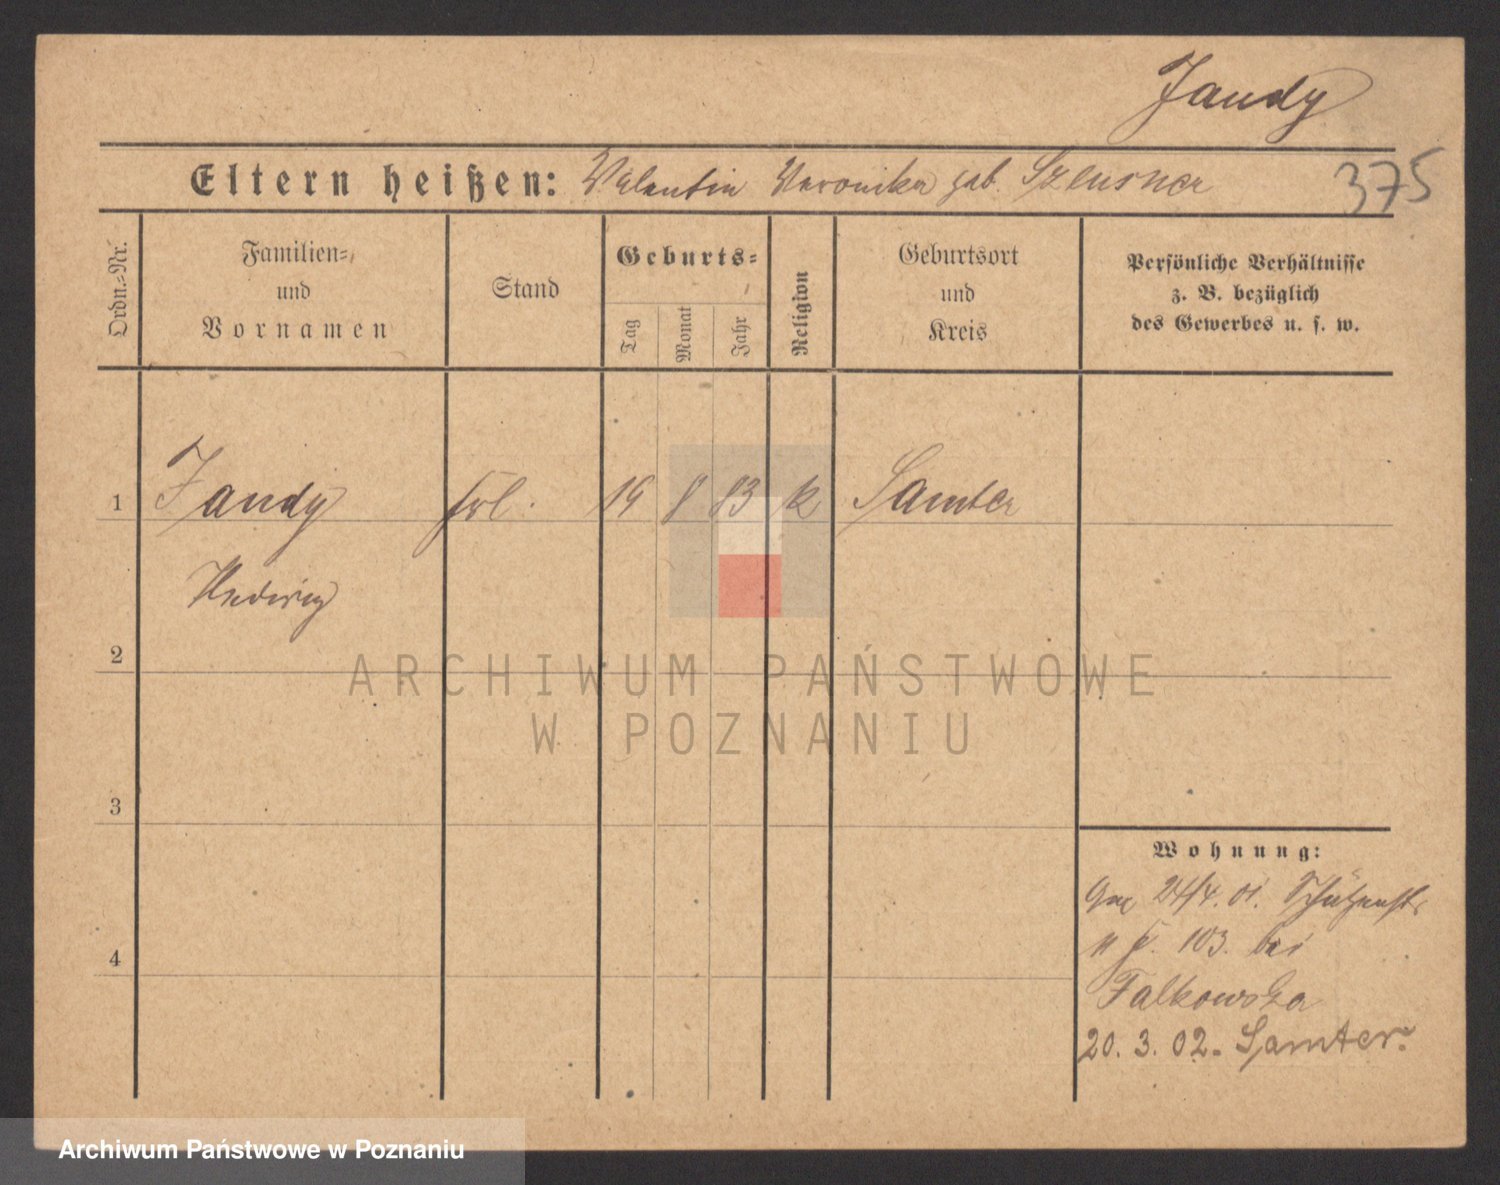 Jandy
Eltern heißen: Valentin Veronika geb.
375
Ordn.-Nr.
Familien-
und
Vornamen
Stand
Geburts-
Tag
Monat
Jahr
Religion
Geburtsort
und
Kreis
Persönliche Verhältnisse
z. B. bezüglich
des Gewerbes u. s. w.
1 Jandy frl. 19 8 83 k Samter
Hedwig
2
ARCHIWUM PAŃSTWOWE
W POZNANIU
3
Wohnung:
24/4. 01. Schützenstr
103. bei
4
Falkowska
20. 3. 02. Samter.
Archiwum Państwowe w Poznaniu